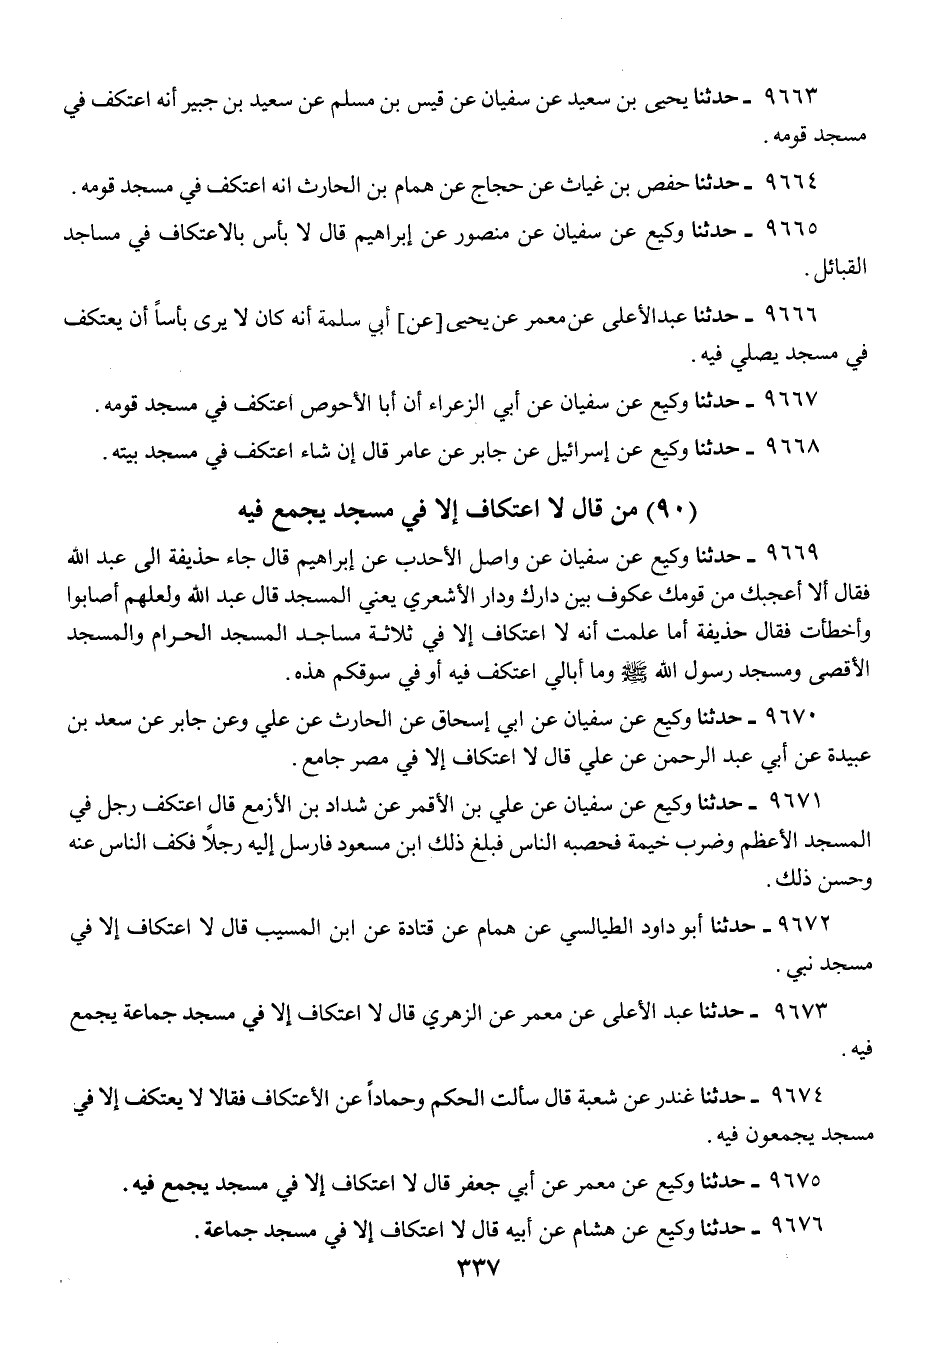 ٩٦٦٣ ـ حدثنا يحيى بن سعيد عن سفيان عن قيس بن مسلم عن سعيد بن جبير أنه اعتكف في
مسجد قومه .
٩٦٦٤ ـ حدثنا حفص بن غياث عن حجاج عن همام بن الحارث انه اعتكف في مسجد قومه .
٩٦٦٥ ـ حدثنا وكيع عن سفيان عن منصور عن إبراهيم قال لا بأس بالاعتكاف في مساجد
القبائل .
٩٦٦٦ ـ حدثنا عبدالأعلى عن معمر عن يحيى [عن] أبي سلمة أنه كان لا يرى بأساً أن يعتكف
في مسجد يصلي فيه .
٩٦٦٧ ـ حدثنا وكيع عن سفيان عن أبي الزعراء أن أبا الأحوص اعتكف في مسجد قومه .
٩٦٦٨ ـ حدثنا وكيع عن إسرائيل عن جابر عن عامر قال إن شاء اعتكف في مسجد بيته .
(٩٠) من قال لا اعتكاف إلا في مسجد يجمع فيه
٩٦٦٩ ـ حدثنا وكيع عن سفيان عن واصل الأحدب عن إبراهيم قال جاء حذيفة الى عبد الله
فقال ألا أعجبك من قومك عكوف بين دارك ودار الأشعري يعني المسجد قال عبد الله ولعلهم أصابوا
وأخطأت فقال حذيفة أما علمت أنه لا اعتكاف إلا في ثلاثة مساجد المسجد الحرام والمسجد
الأقصى ومسجد رسول الله ﷺ وما أبالي اعتكف فيه أو في سوقكم هذه .
٩٦٧٠ ـ حدثنا وكيع عن سفيان عن ابي إسحاق عن الحارث عن علي وعن جابر عن سعد بن
عبيدة عن أبي عبد الرحمن عن علي قال لا اعتكاف إلا في مصر جامع .
٩٦٧١ ـ حدثنا وكيع عن سفيان عن علي بن الأقمر عن شداد بن الأزمع قال اعتكف رجل في
المسجد الأعظم وضرب خيمة فحصبه الناس فبلغ ذلك ابن مسعود فارسل إليه رجلاً فكف الناس عنه
وحسن ذلك .
٩٦٧٢ ـ حدثنا أبو داود الطيالسي عن همام عن قتادة عن ابن المسيب قال لا اعتكاف إلا في
مسجد نبي .
٩٦٧٣ ـ حدثنا عبد الأعلى عن معمر عن الزهري قال لا اعتكاف إلا في مسجد جماعة يجمع
فيه .
٩٦٧٤ ـ حدثنا غندر عن شعبة قال سألت الحكم وحماداً عن الأعتكاف فقالا لا يعتكف إلا في
مسجد يجمعون فيه .
٩٦٧٥ ـ حدثنا وكيع عن معمر عن أبي جعفر قال لا اعتكاف إلا في مسجد يجمع فيه .
٩٦٧٦ ـ حدثنا وكيع عن هشام عن أبيه قال لا اعتكاف إلا في مسجد جماعة .
٣٣٧